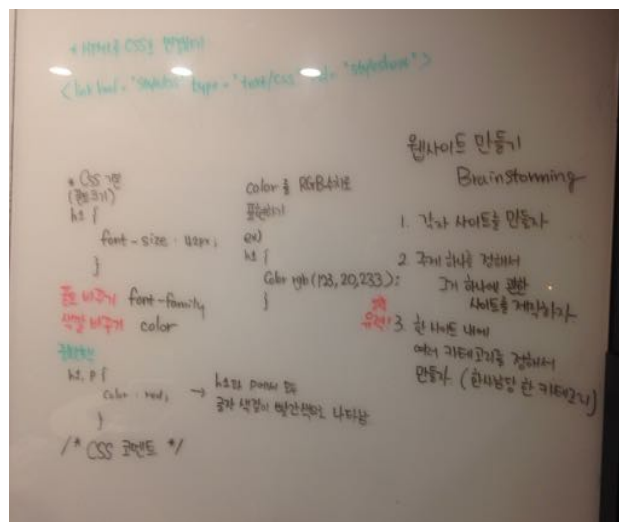 * HTML로 CSS로 연결하기
type = "text/css"
* CSS 기본
(폰트크기)
h1 {
font-size : 42px;
}
폰트 바꾸기 font-family
색깔 바꾸기 color
h1, p {
color : red;
}
→ h1과 p에서 모두
글자 색깔이 빨간색으로 나타남
/* CSS 코멘트 */
color를 RGB수치로
표현하기
ex)
h1 {
Color rgb(123,20,233):
}
웹사이트 만들기
Brainstorming
1. 각자 사이트를 만들자
2. 주제 하나를 정해서
그거 하나에 관한
사이트를 제작하자
유력! 3. 한 사이트 내에
여러 카테고리를 정해서
만들자 (한사람당 한 카테고리)